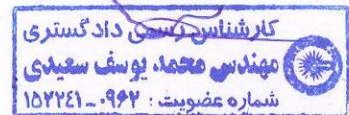 کارشناس رسمی دادگستری
مهندس محمد یوسف سعیدی
شماره عضویت : ۰۹۶۲-۱۵۲۲۴۱